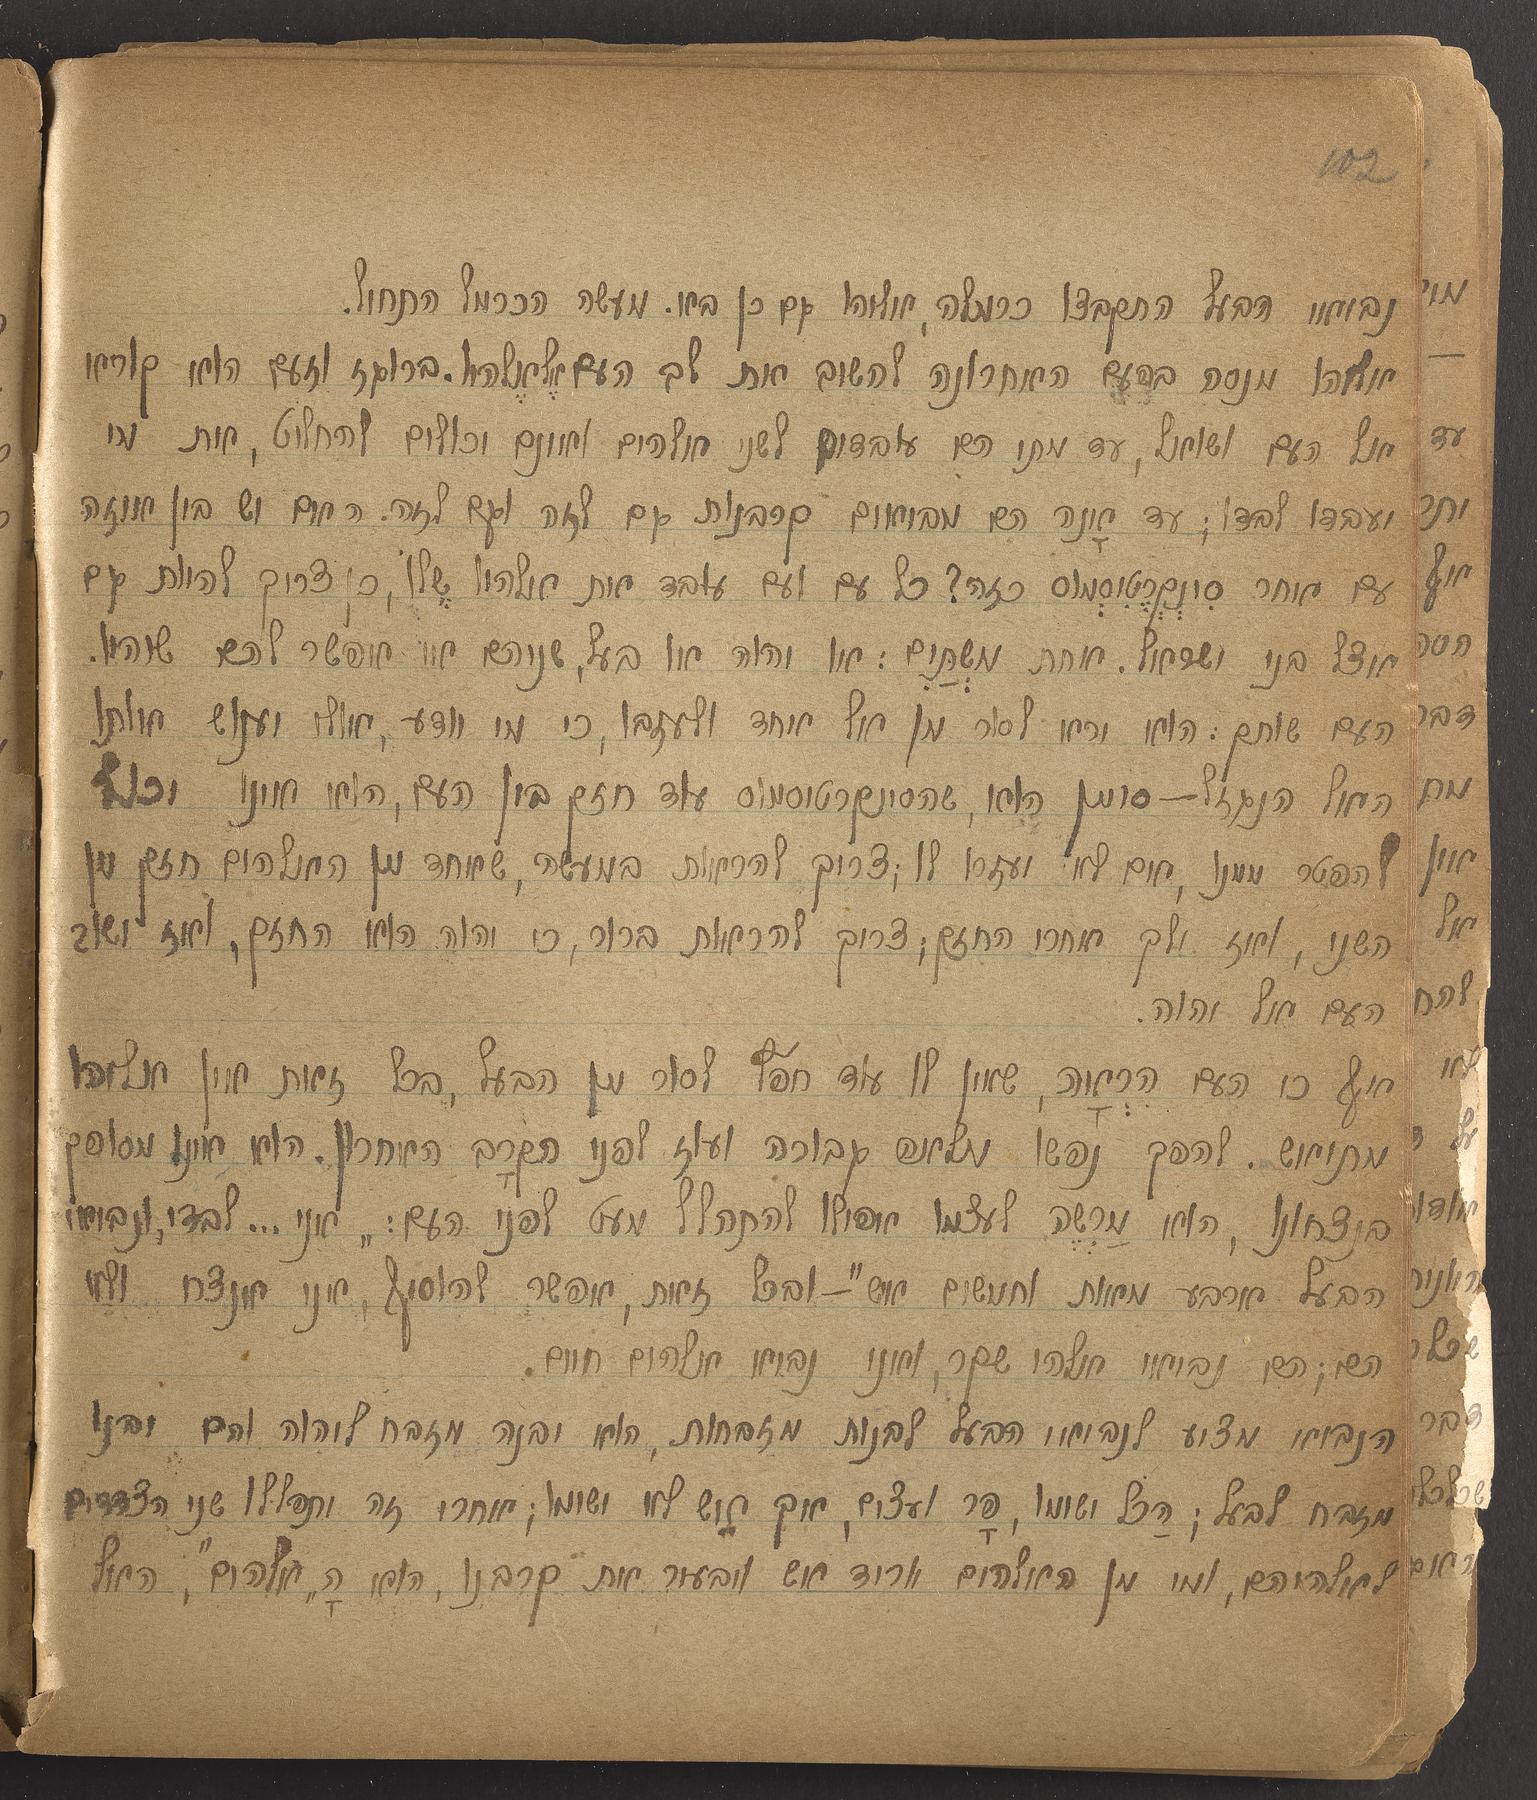 102
נביאי הבעל התקבצו כרמלה, אליהו גם כן בא. מעשה הכרמל התחיל.
אליהו מנסה בפעם האחרונה להשיב את לב העם אל אלהיו. ברוגז וזעם הוא קורא
אל העם ושואל, עד מתי הם עובדים לשני אלהים ואינם יכולים להחליט, את מי
יעבדו לבדו; עד אָנה הם מביאים קרבנות גם לזה וגם לזה. האם יש בין איזה
עם אחר סִינְקְרֶטִיסְמוס כזה? כל עם ועם עובד את אלהיו שֶׁלו, כן צריך להיות גם
אצל בני ישראל. אחת מִשְׁתַּיִם: או יהוה או בעל, שניהם אי אפשר להם שיהיו.
העם שותק: הוא ירא לסור מן אל אחד ולעזבו, כי מי יודע, אולי יענוש אותו
האל הנגזל — סימן הוא, שהסינקרטיסמוס עוד חזק בין העם, הוא אינו יכול
להפטר ממנו, אם לא יעזרו לו; צריך להראות במעשה, שאחד מן האלהים חזק מן
השני, ואז ילך אחרי החזק; צריך להראות ברור, כי יהוה הוא החזק, ואז ישוב
העם אל יהוה.
אף כי העם הִרְאָה, שאין לו עוד חפץ לסור מן הבעל, בכל זאת אין אליהו
מתיאש. להפך נפשו מלאה גבורה ועוז לפני הקְרָב האחרון. הוא אינו מסופק
בנצחונו, הוא מַרְשֶׁה לעצמו אפילו להתהלל מעט לפני העם: „אני ... לבדי, ונביאי
הבעל ארבע מאות וחמשים איש" — ובכל זאת, אפשר להוסיף, אני אנצח ולא
הם; הם נביאי אלהי שקר, ואני נביא אלהים חיים.
הנביא מציע לנביאי הבעל לבנות מזבחות, הוא יבנה מזבח ליהוה והם יבנו
מזבח לבעל; הַכל ישימו, פָּר ועצים, אך אֵש לא ישימו; אחרי זה יתפללו שני הצדדים
לאלהיהם, ומי מן האלהים יוריד אש ויבעור את קרבנו, הוא הָ„אלהים", האל